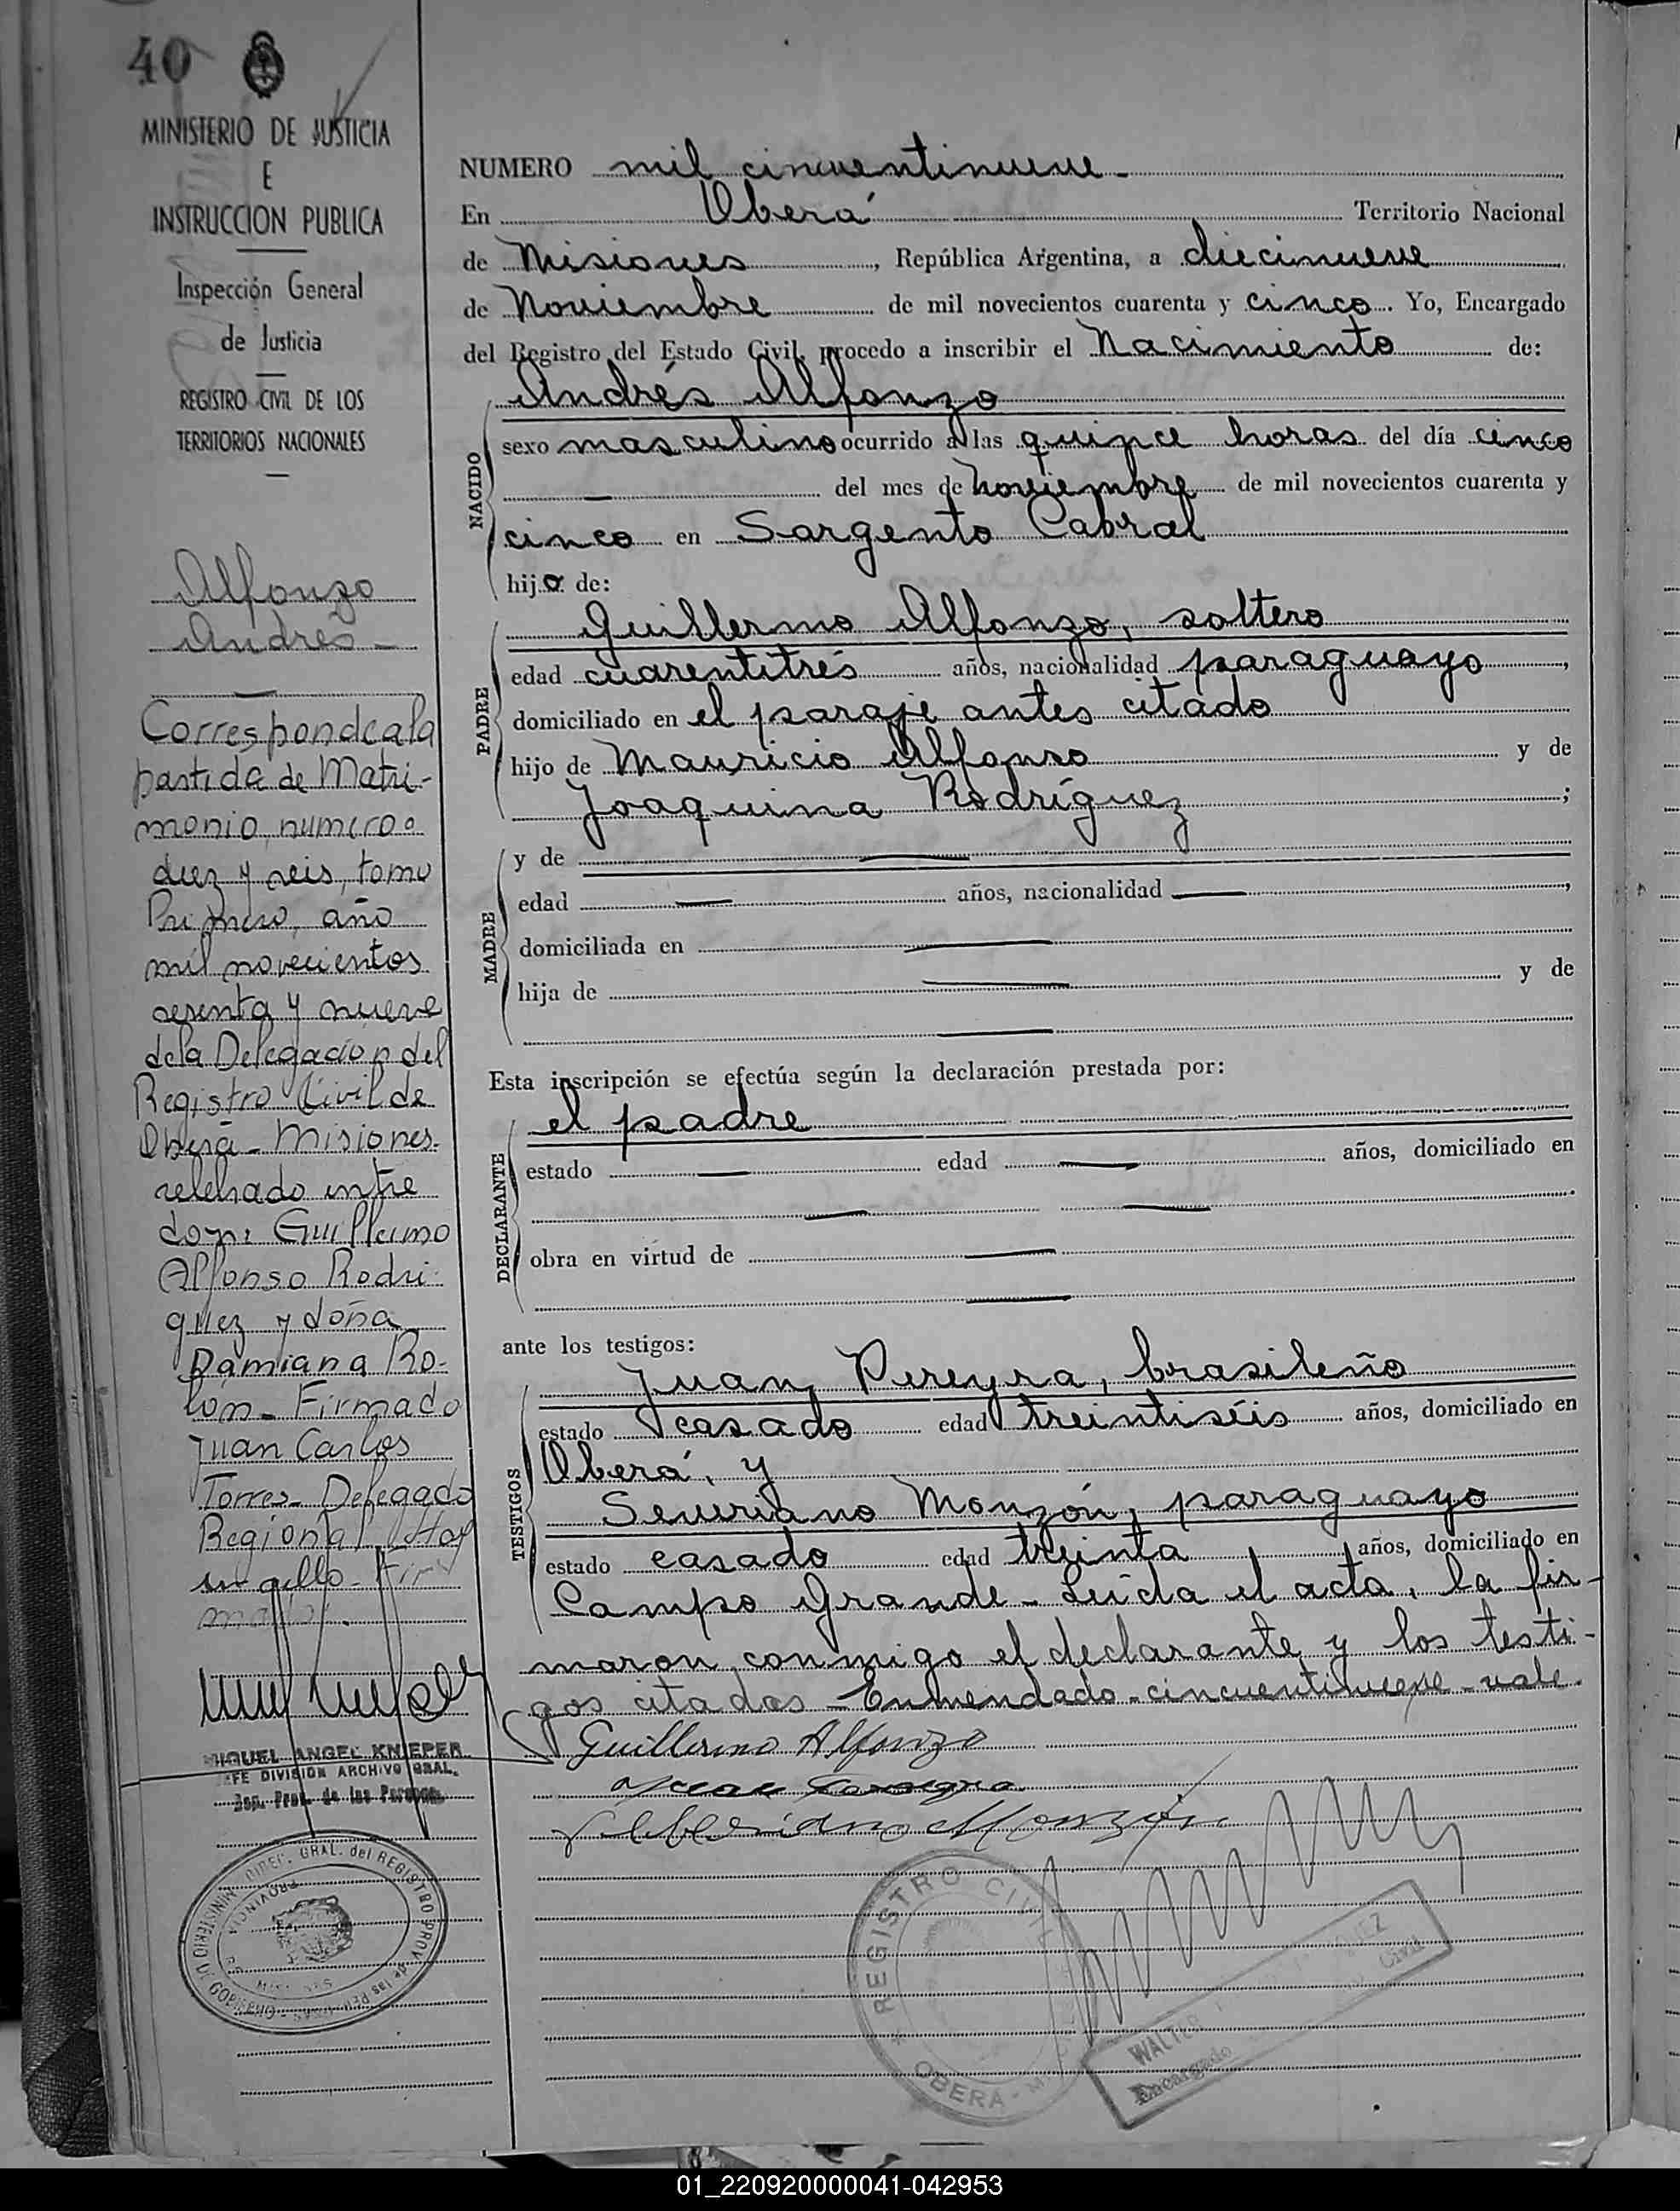 40
MINISTERIO DE JUSTICIA
E
INSTRUCCION PUBLICA
Inspección General
de Justicia
REGISTRO CIVIL DE LOS
TERRITORIOS NACIONALES
Alfonzo
Andrés -
Corresponde a la
partida de Matri-
monio numero
diez y seis, tomo
Primero, año
mil novecientos
sesenta y nueve
de la Delegación del
Registro Civil de
Oberá - Misiones.
celebrado entre
don: Guillermo
Alfonso Rodri
guez y doña
Damiana Ro-
lón - Firmado
Juan Carlos
Torres - Delegado
Regional Hay
un sello - Fir
mado.
MIGUEL ANGEL KNIEPER
JEFE DIVISION ARCHIVO GRAL.
Dep. Prov. de las Personas
MINISTERIO DE GOBIERNO - DIREC. GRAL. del REGISTRO PROV. de las PERSONAS
PROVINCIA DE MISIONES
NUMERO mil cincuentinueve -
En Oberá Territorio Nacional
de Misiones, República Argentina, a diecinueve
de Noviembre de mil novecientos cuarenta y cinco. Yo, Encargado
del Registro del Estado Civil, procedo a inscribir el Nacimiento de:
NACIDO
Andrés Alfonzo
sexo masculino ocurrido a las quince horas del día cinco
— del mes de noviembre de mil novecientos cuarenta y
cinco en Sargento Cabral
hijo de:
PADRE
Guillermo Alfonzo, soltero
edad cuarentitrés años, nacionalidad paraguayo,
domiciliado en el paraje antes citado
hijo de Mauricio Alfonso y de
Joaquina Rodríguez;
MADRE
y de —
edad — años, nacionalidad —,
domiciliada en —
hija de — y de
—
Esta inscripción se efectúa según la declaración prestada por:
DECLARANTE
el padre
estado — edad — años, domiciliado en
— —
obra en virtud de —
—
ante los testigos:
TESTIGOS
Juan Pereyra, brasileño
estado casado edad treintiséis años, domiciliado en
Oberá, y
Severiano Monzón, paraguayo
estado casado edad treinta años, domiciliado en
Campo Grande - Leída el acta, la fir-
maron conmigo el declarante y los testi-
gos citados - Enmendado - cincuentinueve - vale.
Guillermo Alfonzo
Monzón
REGISTRO CIVIL
OBERA -
WALTER
Encargado Civil
01_220920000041-042953